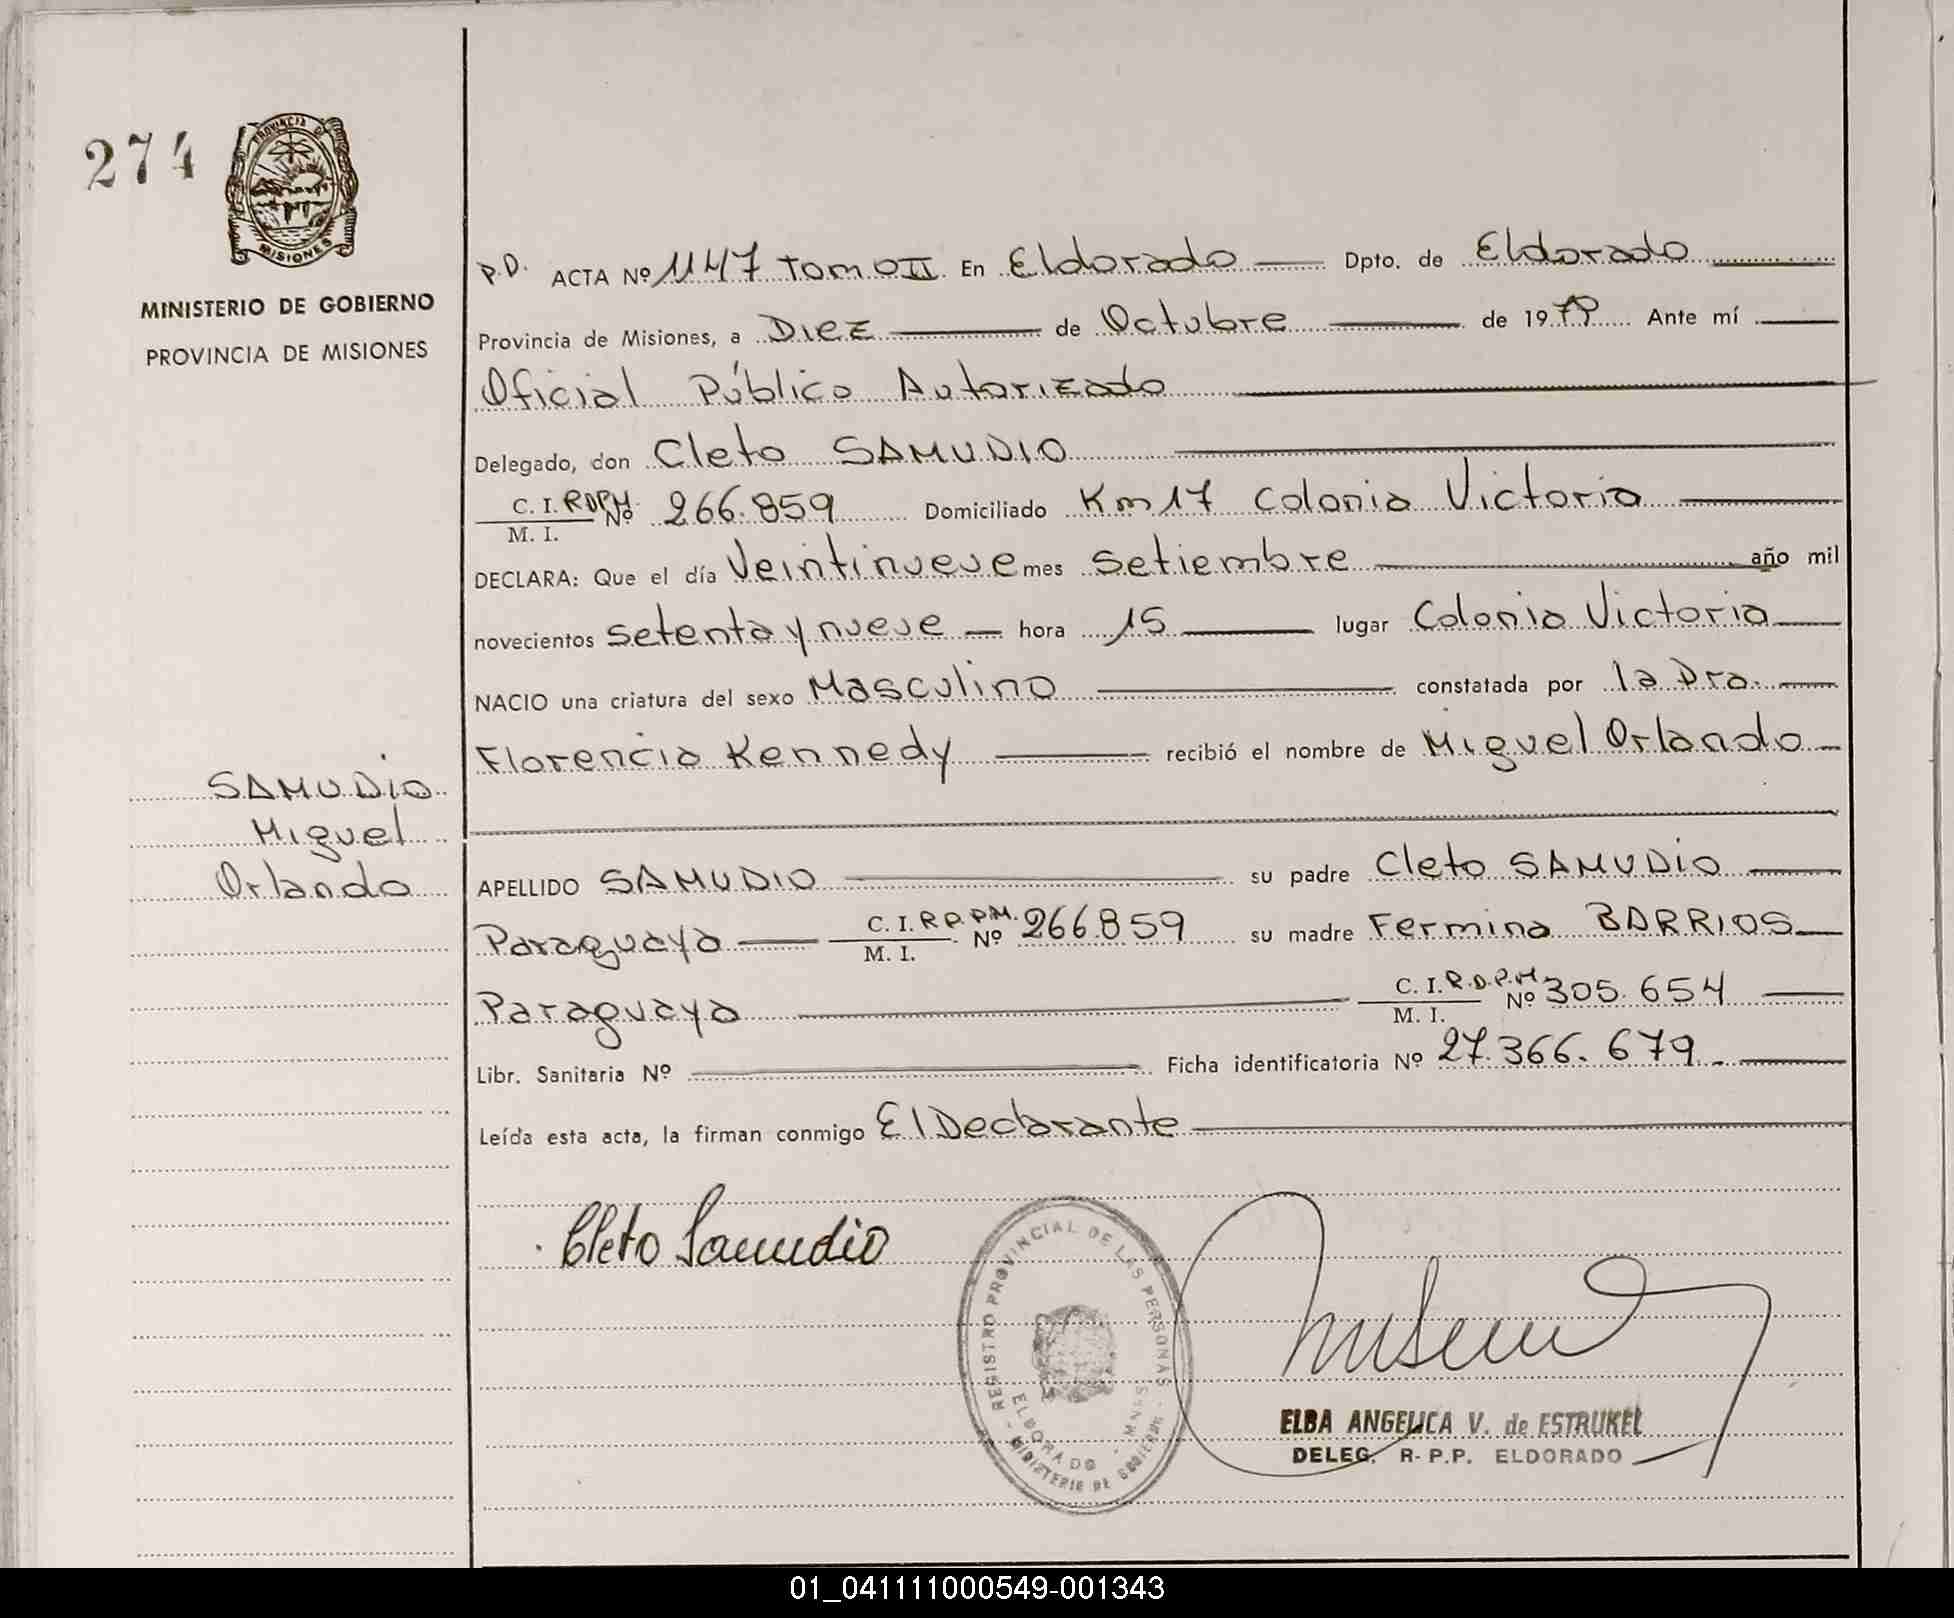 274
PROVINCIA DE
MISIONES
MINISTERIO DE GOBIERNO
PROVINCIA DE MISIONES
P.D. ACTA Nº 1147 Tomo II En Eldorado Dpto. de Eldorado
Provincia de Misiones, a Diez de Octubre de 1979 Ante mí
Oficial Público Autorizado
Delegado, don Cleto SAMUDIO
C. I. RDPM. Nº 266.859 Domiciliado Km 17 Colonia Victoria
M. I.
DECLARA: Que el día Veintinueve mes Setiembre año mil
novecientos Setenta y nueve hora 15 lugar Colonia Victoria
NACIO una criatura del sexo Masculino constatada por la Dra.
Florencia Kennedy recibió el nombre de Miguel Orlando
SAMUDIO
Miguel
Orlando
APELLIDO SAMUDIO su padre Cleto SAMUDIO
Paraguaya C. I. R.D.P.M. Nº 266859 su madre Fermina BARRIOS
M. I.
Paraguaya C. I. R.D.P.M Nº 305.654
M. I.
Libr. Sanitaria Nº Ficha identificatoria Nº 27.366.679
Leída esta acta, la firman conmigo El Declarante
Cleto Samudio
REGISTRO PROVINCIAL DE LAS PERSONAS
ELDORADO - MNES
MINISTERIO DE GOBIERNO
ELBA ANGELICA V. de ESTRUKEL
DELEG. R.P.P. ELDORADO
01_041111000549-001343